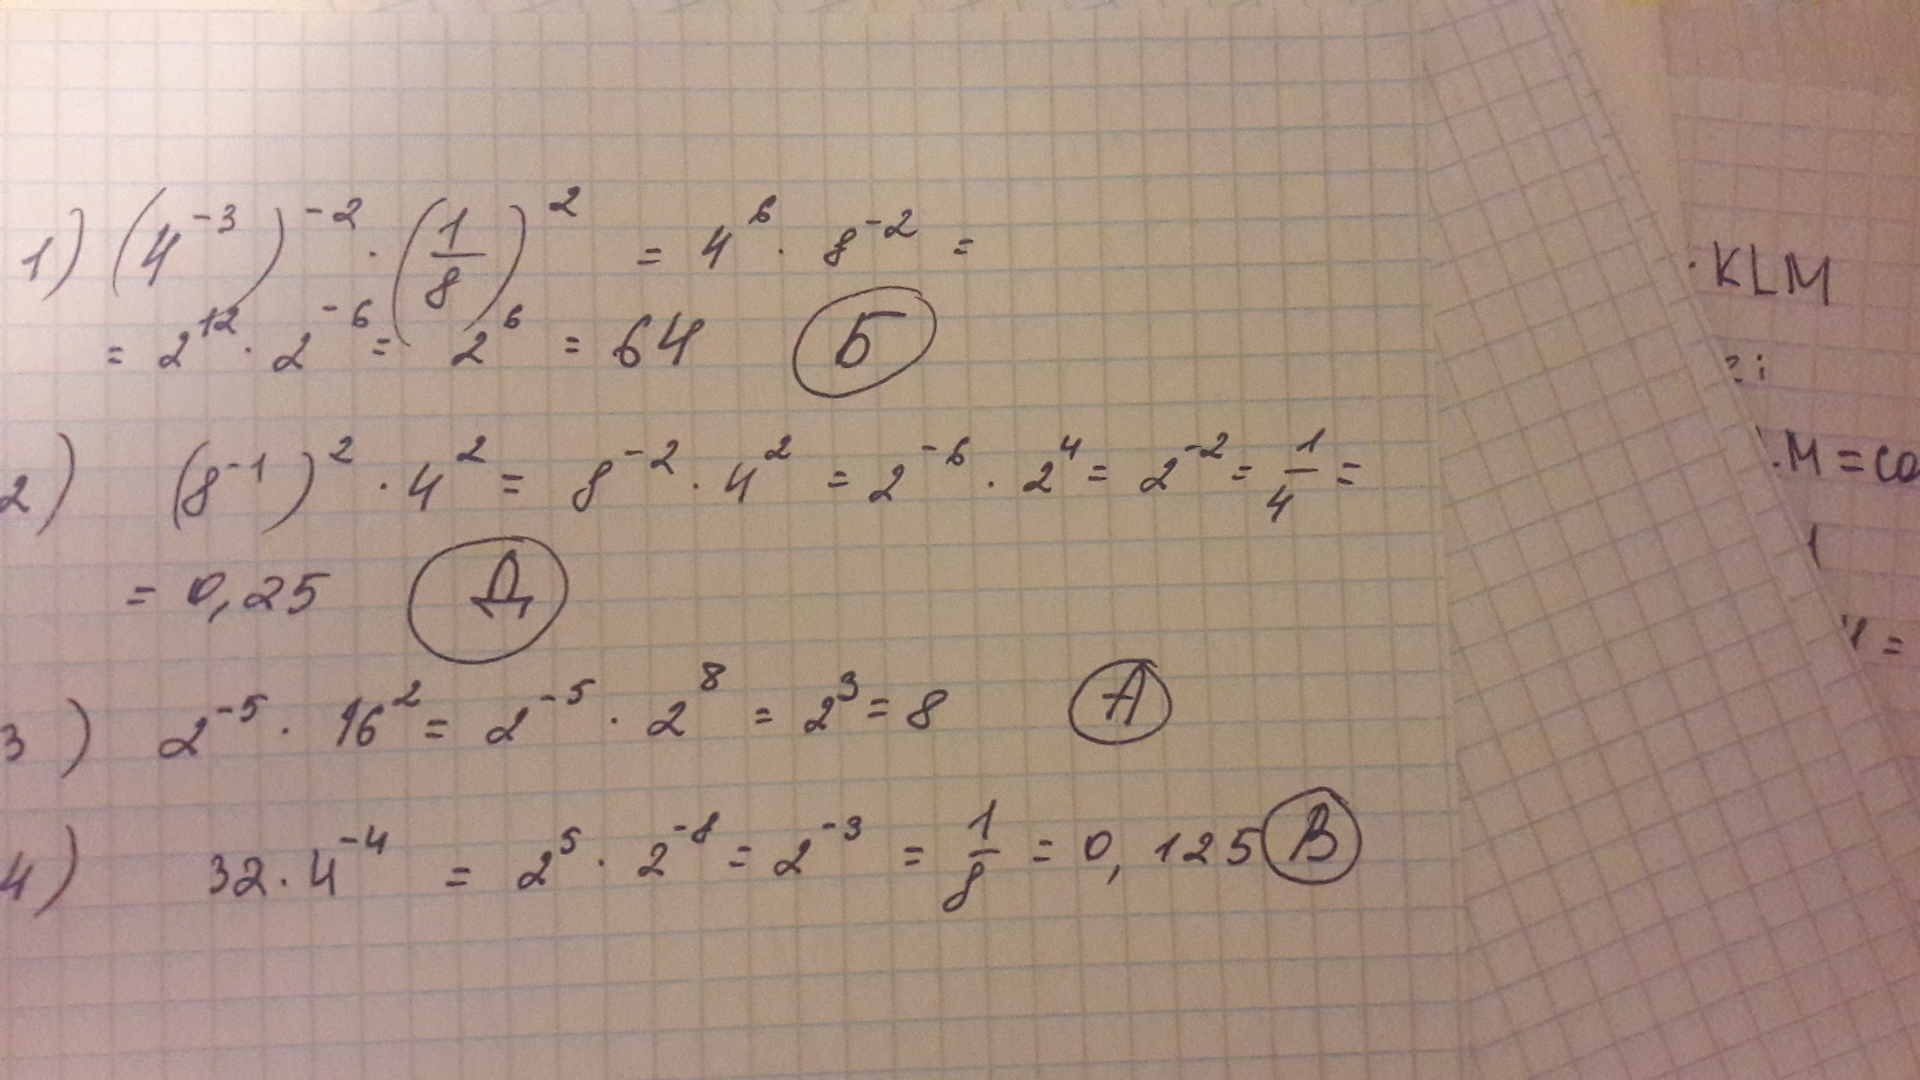 1) (4^-3)^-2 · (1/8)^2 = 4^6 · 8^-2 =
= 2^12 · 2^-6 = 2^6 = 64 Б
2) (8^-1)^2 · 4^2 = 8^-2 · 4^2 = 2^-6 · 2^4 = 2^-2 = 1/4 =
= 0,25 Д
3) 2^-5 · 16^2 = 2^-5 · 2^8 = 2^3 = 8 А
4) 32 · 4^-4 = 2^5 · 2^-8 = 2^-3 = 1/8 = 0,125 В
KLM
M = co